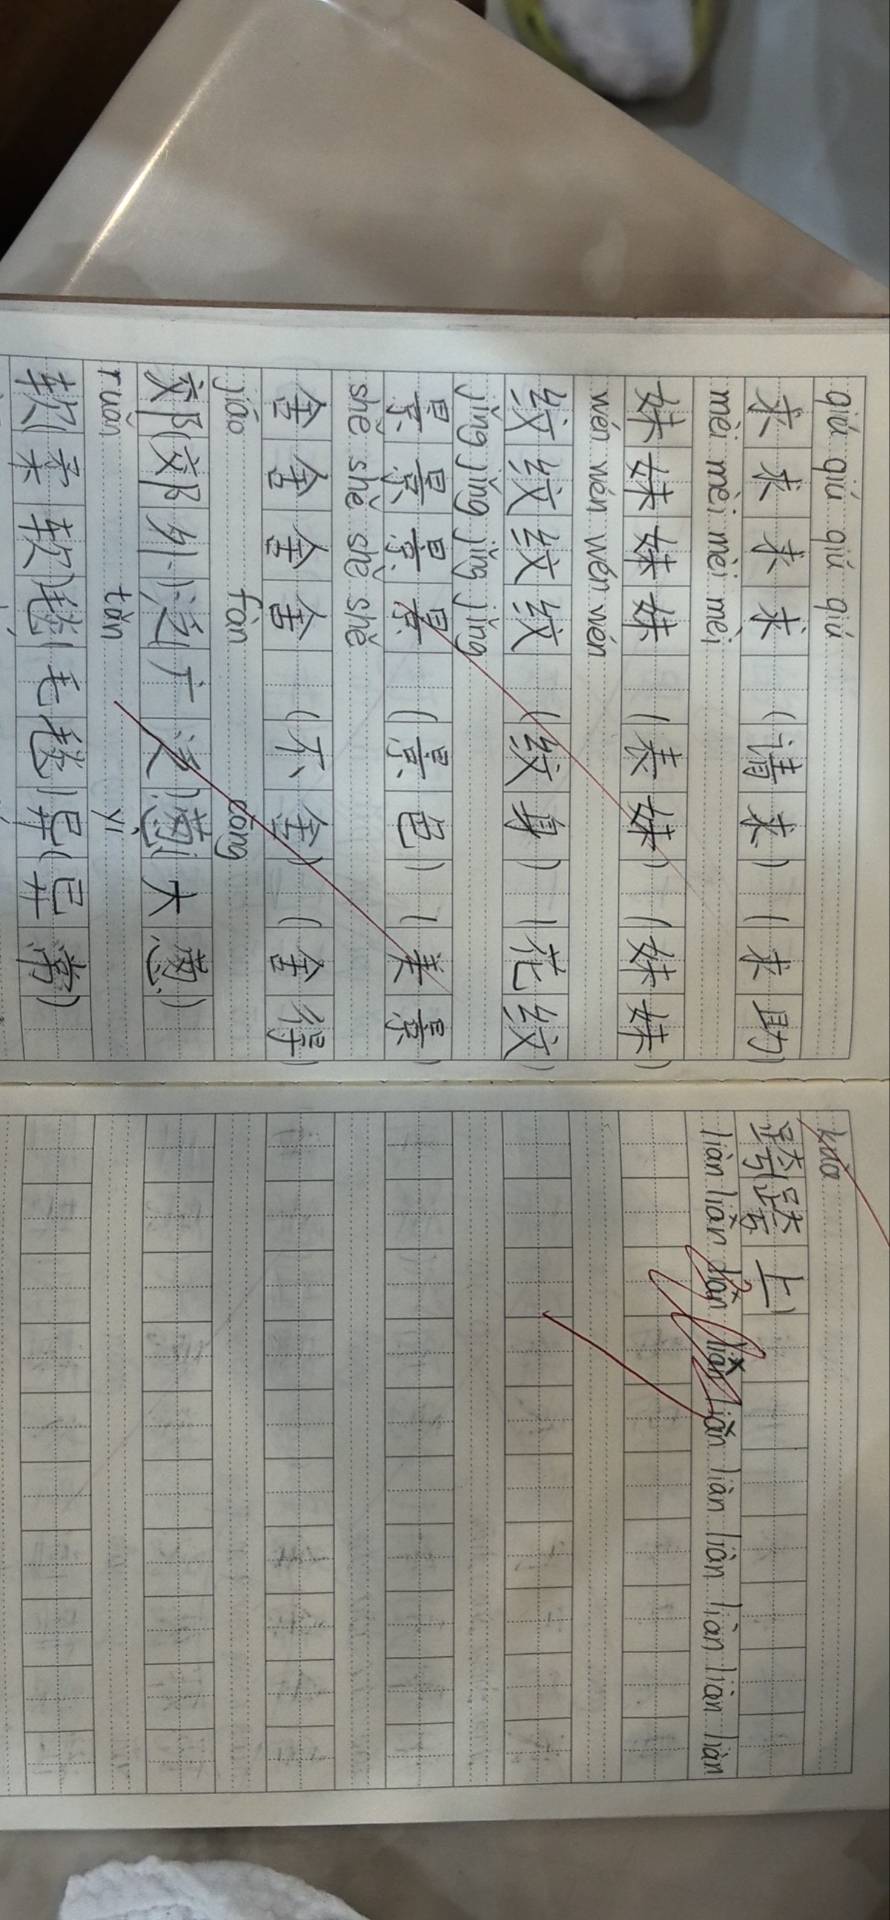 qiú qiú qiú qiú
求求求求(请求)(求助)
mèi mèi mèi mèi
妹妹妹妹(表妹)(妹妹)
wén wén wén wén
纹纹纹纹(纹身)(花纹)
jǐng jǐng jǐng jǐng
景景景景(景色)(美景)
shě shě shě shě
舍舍舍舍(不舍)(舍得)
jiāo fàn cōng
郊(郊外)泛(广泛)葱(大葱)
ruǎn tǎn yì
软(柔软)毯(毛毯)异(异常)
kuà
跨(跨上)
liàn liàn liàn liàn liàn liàn liàn liàn